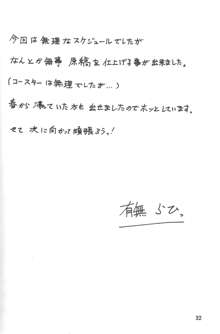 今回は無理なスケジュールでしたが
なんとか無事 原稿を仕上げる事が出来ました。
(コースターは無理でしたが…)
昔から 凍っていた方も 出せましたのでホッとしています。
さて 次に向かって頑張ろう!
有無 らひ。
32